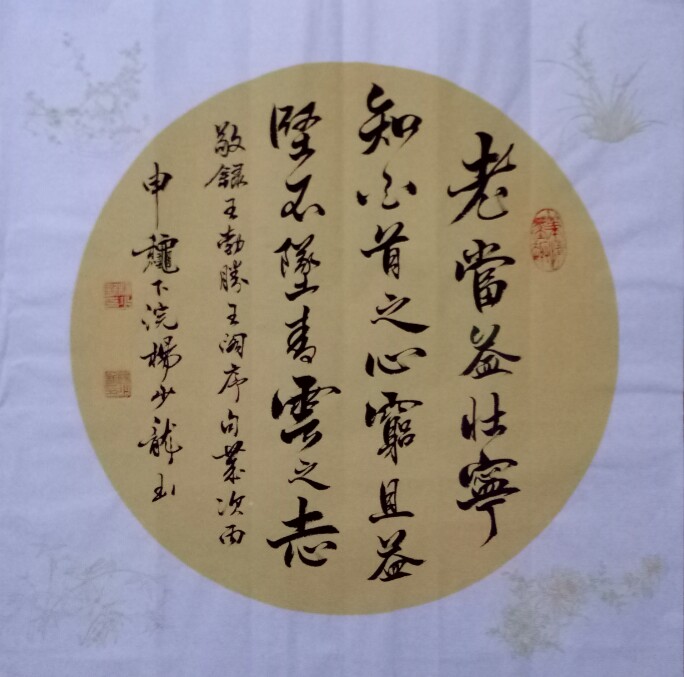 老當益壯寧
知白首之心窮且益
堅不墜青雲之志
敬録王勃勝王阁序句歲次丙
申龝下浣楊少龍